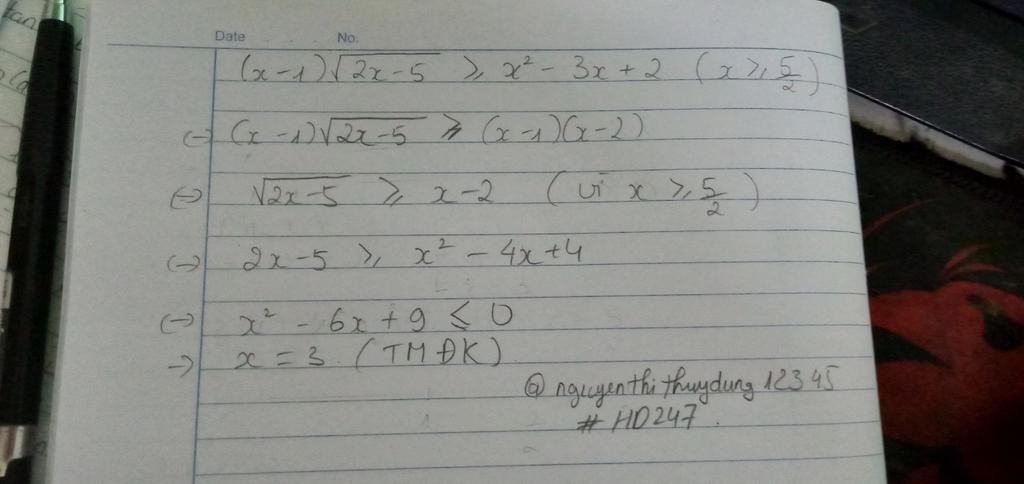 Date No.
(x-1)√2x-5 ≥ x² - 3x + 2 (x ≥ 5/2)
(=) (x-1)√2x-5 ≥ (x-1)(x-2)
(=) √2x-5 ≥ x-2 (vì x ≥ 5/2)
(=) 2x-5 ≥ x² - 4x+4
(=) x² - 6x + 9 ≤ 0
=) x = 3 (TMĐK)
@ nguyenthithuydung12345
# HD247.